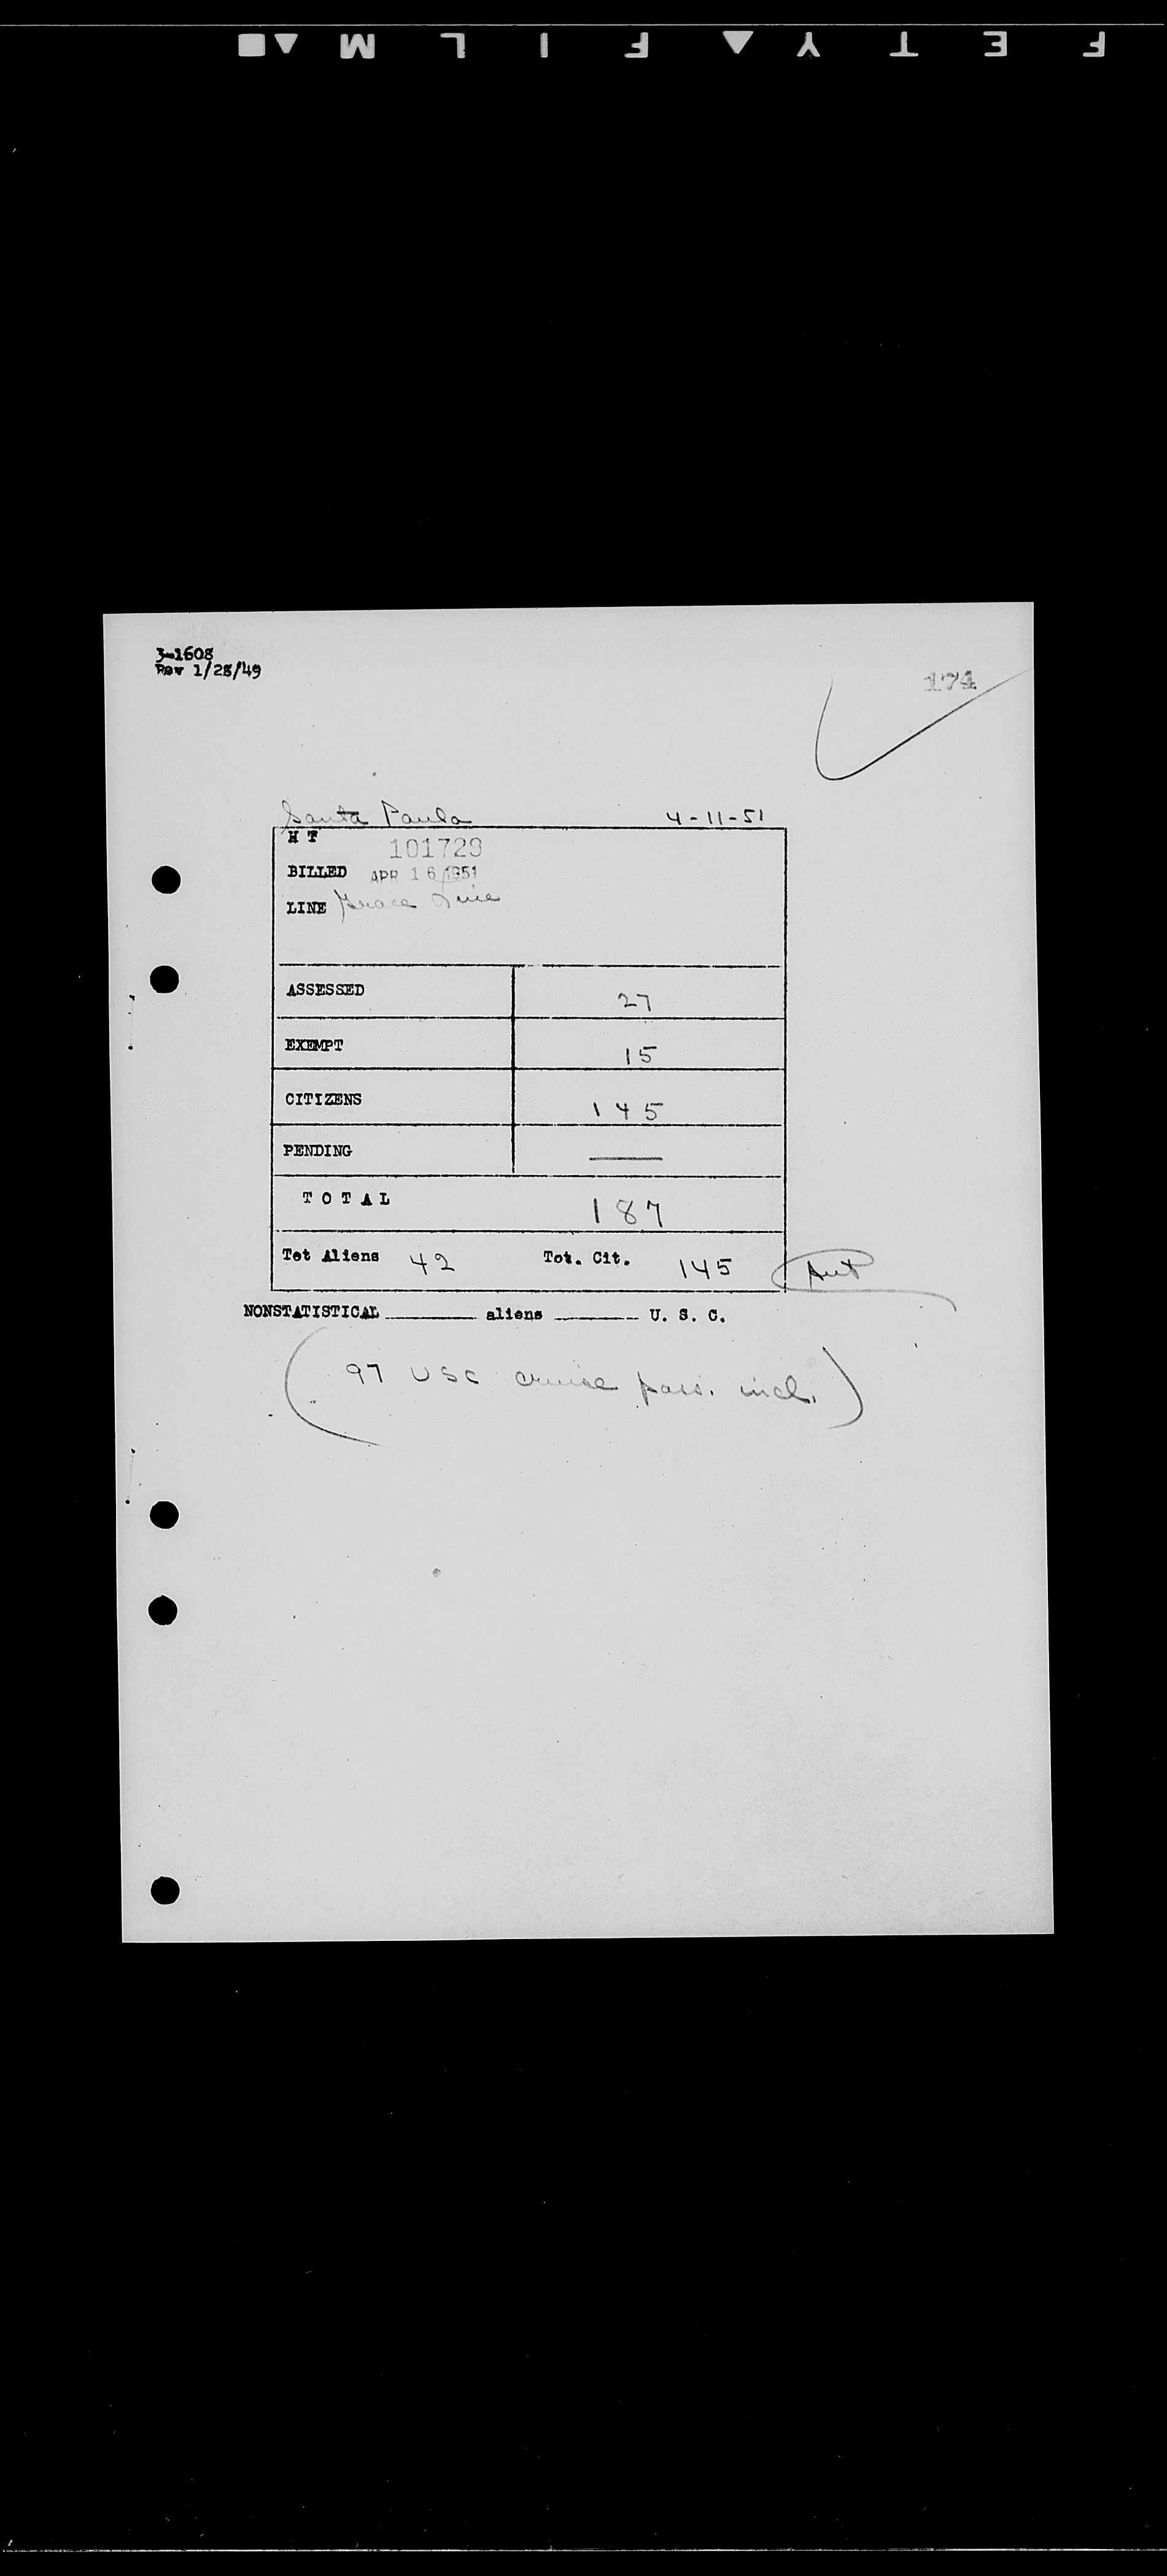 3-1608
Rev 1/28/49
174
Santa Paula 4-11-51
H T 101729
BILLED APR 16 1951
LINE Grace Line
ASSESSED 27
EXEMPT 15
CITIZENS 145
PENDING —
TOTAL 187
Tot Aliens 42 Tot. Cit. 145
NONSTATISTICAL ______ aliens ______ U. S. C.
(97 USC cruise pass. incl.)
SAFETY FILM